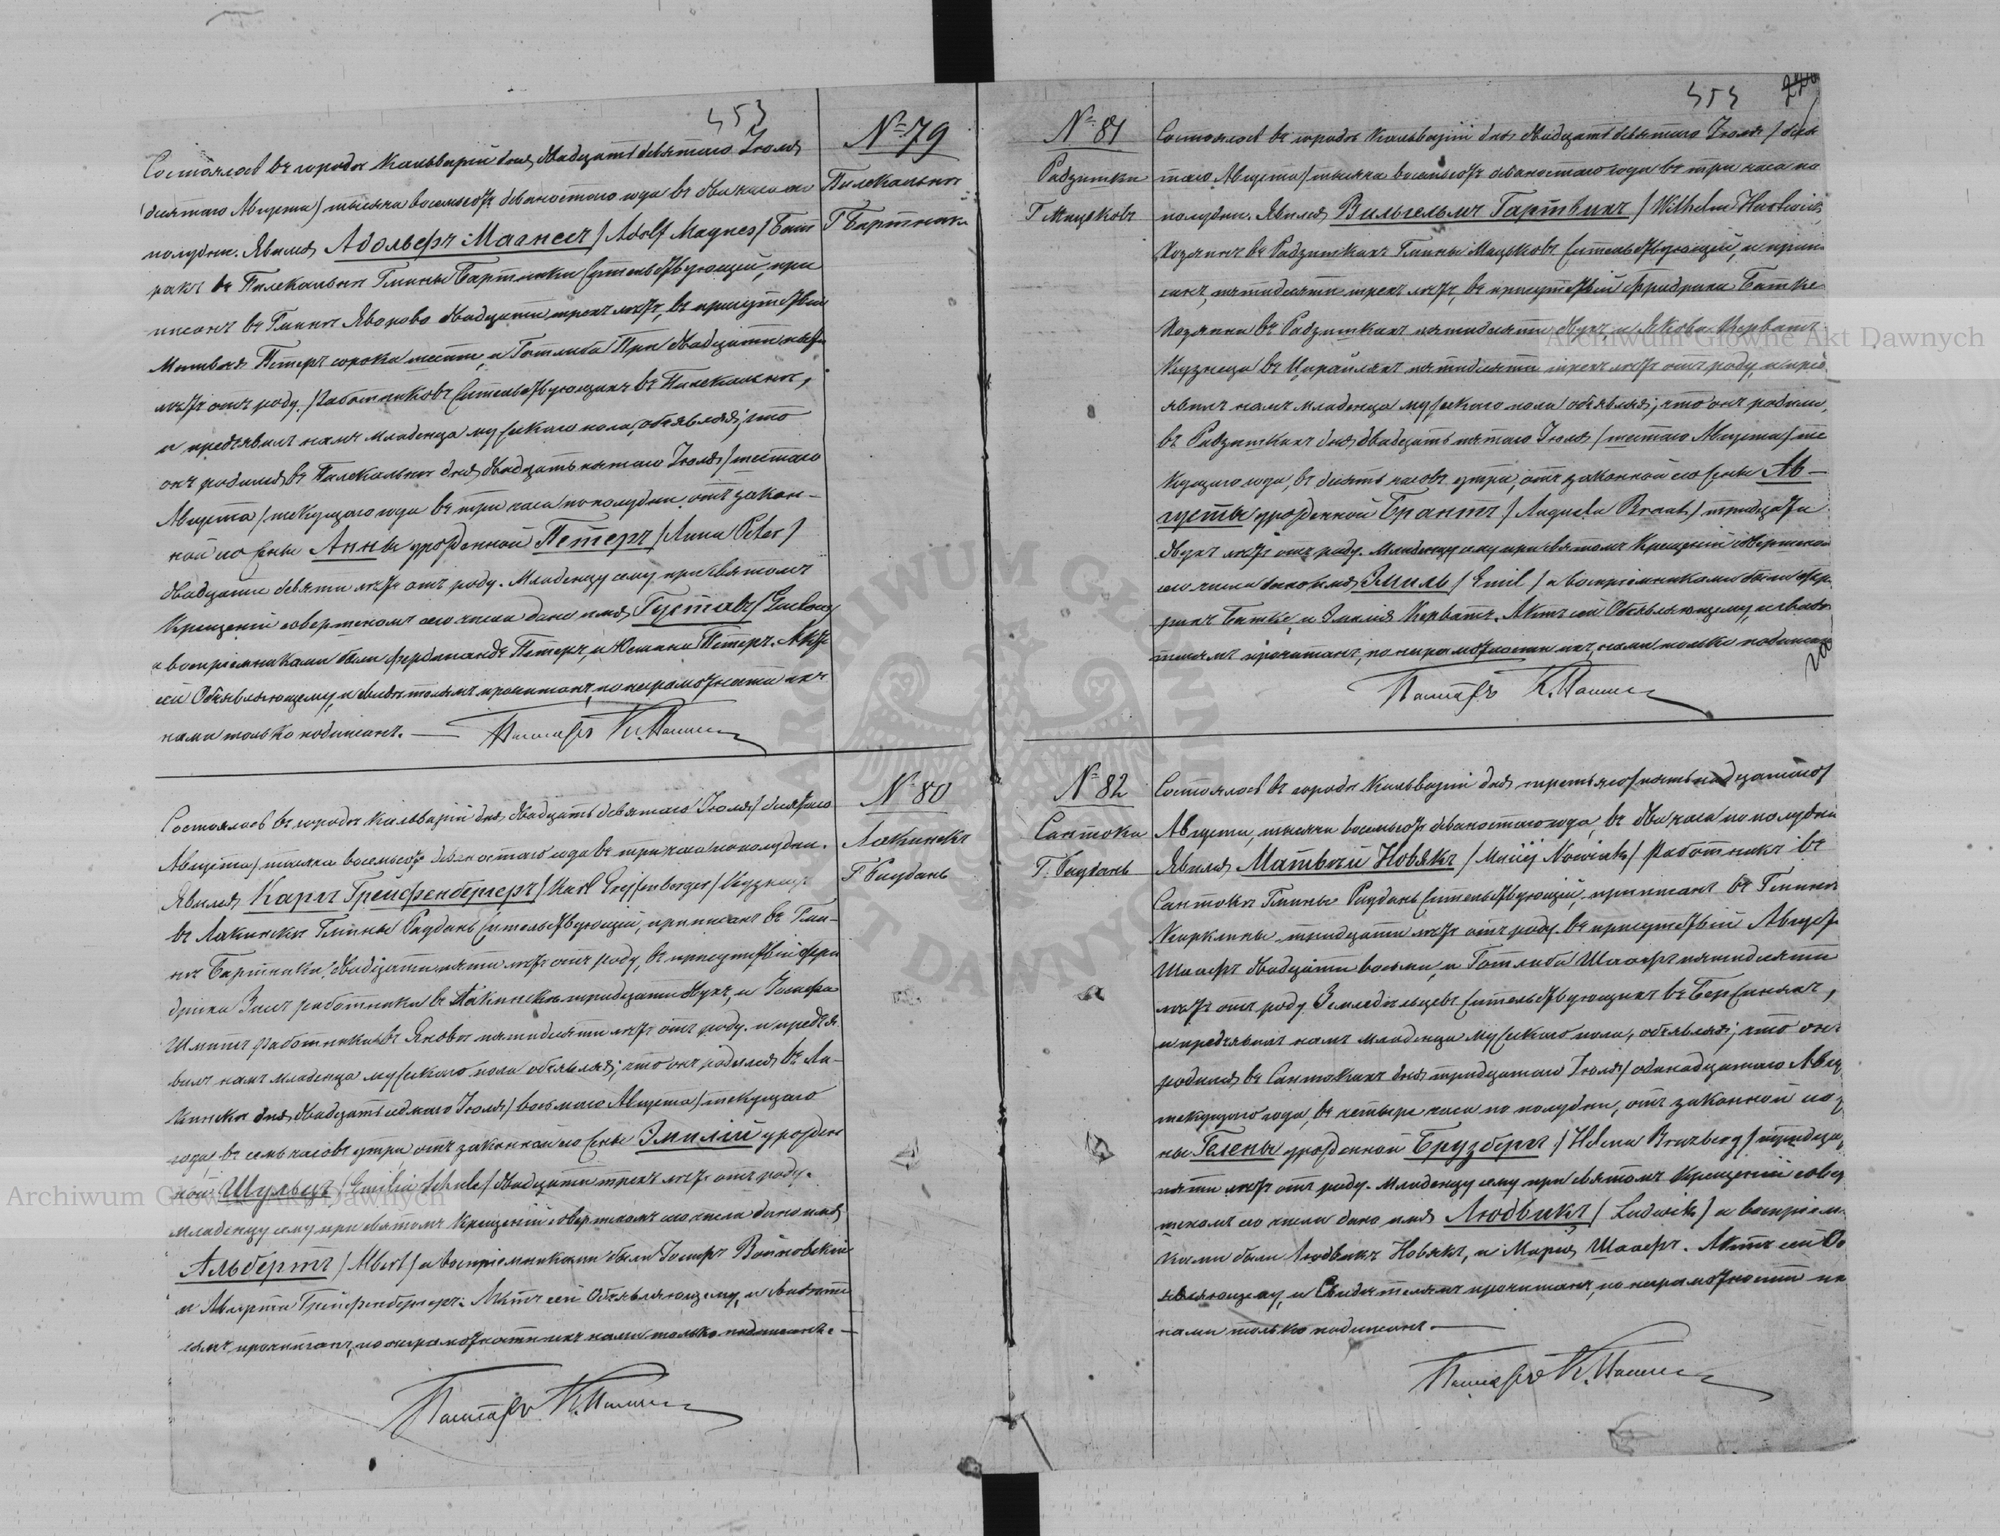 453
№ 79
Пилекальни
Г Бартники
Состоялось въ городѣ Кальваріи дня двадцать девятаго Іюля
/десятаго Августа/ тысяча восемьсотъ девяностаго года въ два часа по
полудни. Явился Адольфъ Магнесъ /Adolf Magnes/ Бат
ракъ въ Пилекальни Гмины Бартники жительствующій, при
писанъ въ Гминѣ Яворово двадцати трехъ лѣтъ, въ присутствіи
Матвея Петеръ сорока шести, и Готлиба При двадцати
лѣтъ отъ роду, Работниковъ жительствующихъ въ Пилекальни,
и предъявилъ намъ младенца мужескаго пола, объявляя, что
онъ родился въ Пилекальни дня двадцать пятаго Іюля /шестаго
Августа/ текущаго года въ три часа по полудни отъ закон-
ной его жены Анны урожденной Петеръ /Anna Peter/
двадцати девяти лѣтъ отъ роду. Младенцу сему при святомъ
Крещеніи совершенномъ сего числа дано имя Густавъ /Gustav/
а воспріемниками были Фердинандъ Петеръ, и Юстина Петеръ. Актъ
сей Объявляющему, и свидѣтелямъ прочитанъ, по неграмотности ихъ
нами только подписанъ.
Пасторъ К.
№ 80
Лакинскъ
Г Раудань
Состоялось въ городѣ Кальваріи дня двадцать девятаго Іюля /десятаго
Августа/ тысяча восемьсотъ девяностаго года въ три часа по полудни.
Явился Карлъ Грейфенбергеръ /Karl Greifenberger/ Кузнецъ
въ Лакински Гмины Раудань жительствующій, приписанъ въ Гми-
нѣ Бартники, двадцати пяти лѣтъ отъ роду, въ присутствіи Фри
дриха работника въ Лакинскѣ тридцати двухъ, и Іосифа
Шмитъ работника въ Яново пятидесяти лѣтъ отъ роду. и предъя
вилъ намъ младенца мужескаго пола объявляя, что онъ родился въ Ла-
кински дня двадцать седмаго Іюля /восьмаго Августа/ текущаго
года, въ семь часовъ утра отъ законной его жены Эмиліи урожден
ной Шульцъ /Emilia Schulz/ двадцати трехъ лѣтъ отъ роду.
Младенцу сему при святомъ Крещеніи совершенномъ сего числа дано имя
Альбертъ /Albert/ а воспріемниками были Іосифъ Войновскій
и Августа Грейфенбергеръ. Актъ сей Объявляющему, и свидѣте
лямъ прочитанъ, по неграмотности ихъ нами только подписанъ.
Пасторъ К.
454
№ 81
Радзишки
Г Мацковъ
Состоялось въ городѣ Кальваріи дня двадцать девятаго Іюля /деся
таго Августа/ тысяча восемьсотъ девяностаго года въ три часа по
полудни. Явился Вильгельмъ Гартвихъ /Wilhelm Hartwich/
Хозяинъ въ Радзишкахъ Гмины Мацковъ жительствующій, и припи
санъ, пятидесяти трехъ лѣтъ, въ присутствіи Фридриха Батке
Хозяина въ Радзишкахъ пятидесяти двухъ и Якова Керватъ
Кузнеца въ пятидесяти трехъ лѣтъ отъ роду, и предъ
явилъ намъ младенца мужескаго пола объявляя, что онъ родился,
въ Радзишкахъ дня двадцать пятаго Іюля /шестаго Августа/ те
кущаго года, въ десять часовъ утра, отъ законной его жены Ав-
густы урожденной Брантъ /Augusta Brant/ тридцати
двухъ лѣтъ отъ роду. Младенцу сему при святомъ Крещеніи совершенномъ
сего числа дано имя Эмиль /Emil/ а воспріемниками были Фри
рихъ Батке, и Эмилія Керватъ. Актъ сей Объявляющему, и свидѣ
телямъ прочитанъ, по неграмотности ихъ нами только подписанъ
Пасторъ К.
№ 82
Сантока
Г. Раудань
Состоялось въ городѣ Кальваріи дня третьяго /пятьнадцатаго/
Августа, тысяча восемьсотъ девяностаго года, въ два часа по полудни
Явился Матвей Новякъ /Maciej Nowiak/ Работникъ въ
Сантокѣ Гмины Раудань жительствующій, приписанъ въ Гминѣ
Кирклины тридцати лѣтъ отъ роду. въ присутствіи Августъ
Шаафъ двадцати восьми, и Готлиба Шаафъ пятидесяти
лѣтъ отъ роду Земледѣльцевъ жительствующихъ въ Бержиныхъ,
и предъявилъ намъ младенца мужескаго пола, объявляя, что онъ
родился въ Сантокахъ дня тридцатаго Іюля /одинадцатаго Авгу
текущаго года, въ четыре часа по полудни, отъ законной его
ны Гелены урожденной Брузбергъ /Helena Bruzberg/ тридца
пяти лѣтъ отъ роду. Младенцу сему при святомъ Крещеніи совер
шенномъ сего числа дано имя Людвикъ /Ludwik/ а воспріем
ками были Людвикъ Новякъ, и Марія Шаафъ. Актъ сей Об
являющему, и Свидѣтелямъ прочитанъ, по неграмотности их
нами только подписанъ.
Пасторъ К.
ARCHIWUM GŁÓWNE AKT DAWNYCH
Archiwum Główne Akt Dawnych
Archiwum Główne Akt Dawnych